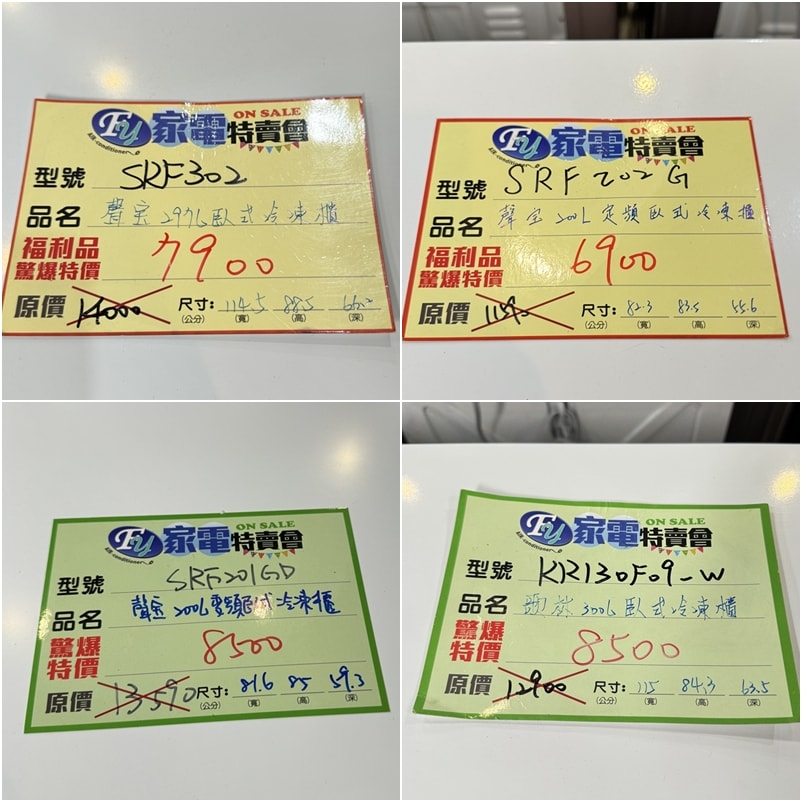 Fu 家電特賣會 ON SALE
Air-conditioner
型號 SRF302
品名 聲宝 297L臥式冷凍櫃
福利品
驚爆特價 7900
原價 14000 尺寸: 114.5 88.5 66.2
(公分) (寬) (高) (深)
Fu 家電特賣會 ON SALE
Air-conditioner
型號 SRF202G
品名 聲宝 200L定頻臥式冷凍櫃
福利品
驚爆特價 6900
原價 尺寸: 82.3 83.5 55.6
(公分) (寬) (高) (深)
Fu 家電特賣會 ON SALE
Air-conditioner
型號 SRF201GD
品名 聲宝 200L變頻臥式冷凍櫃
驚爆
特價 8500
原價 13590 尺寸: 81.6 85 59.3
(公分) (寬) (高) (深)
Fu 家電特賣會 ON SALE
Air-conditioner
型號 KR130F09-W
品名 歌林 300L臥式冷凍櫃
驚爆
特價 8500
原價 12900 尺寸: 115 84.3 63.5
(公分) (寬) (高) (深)